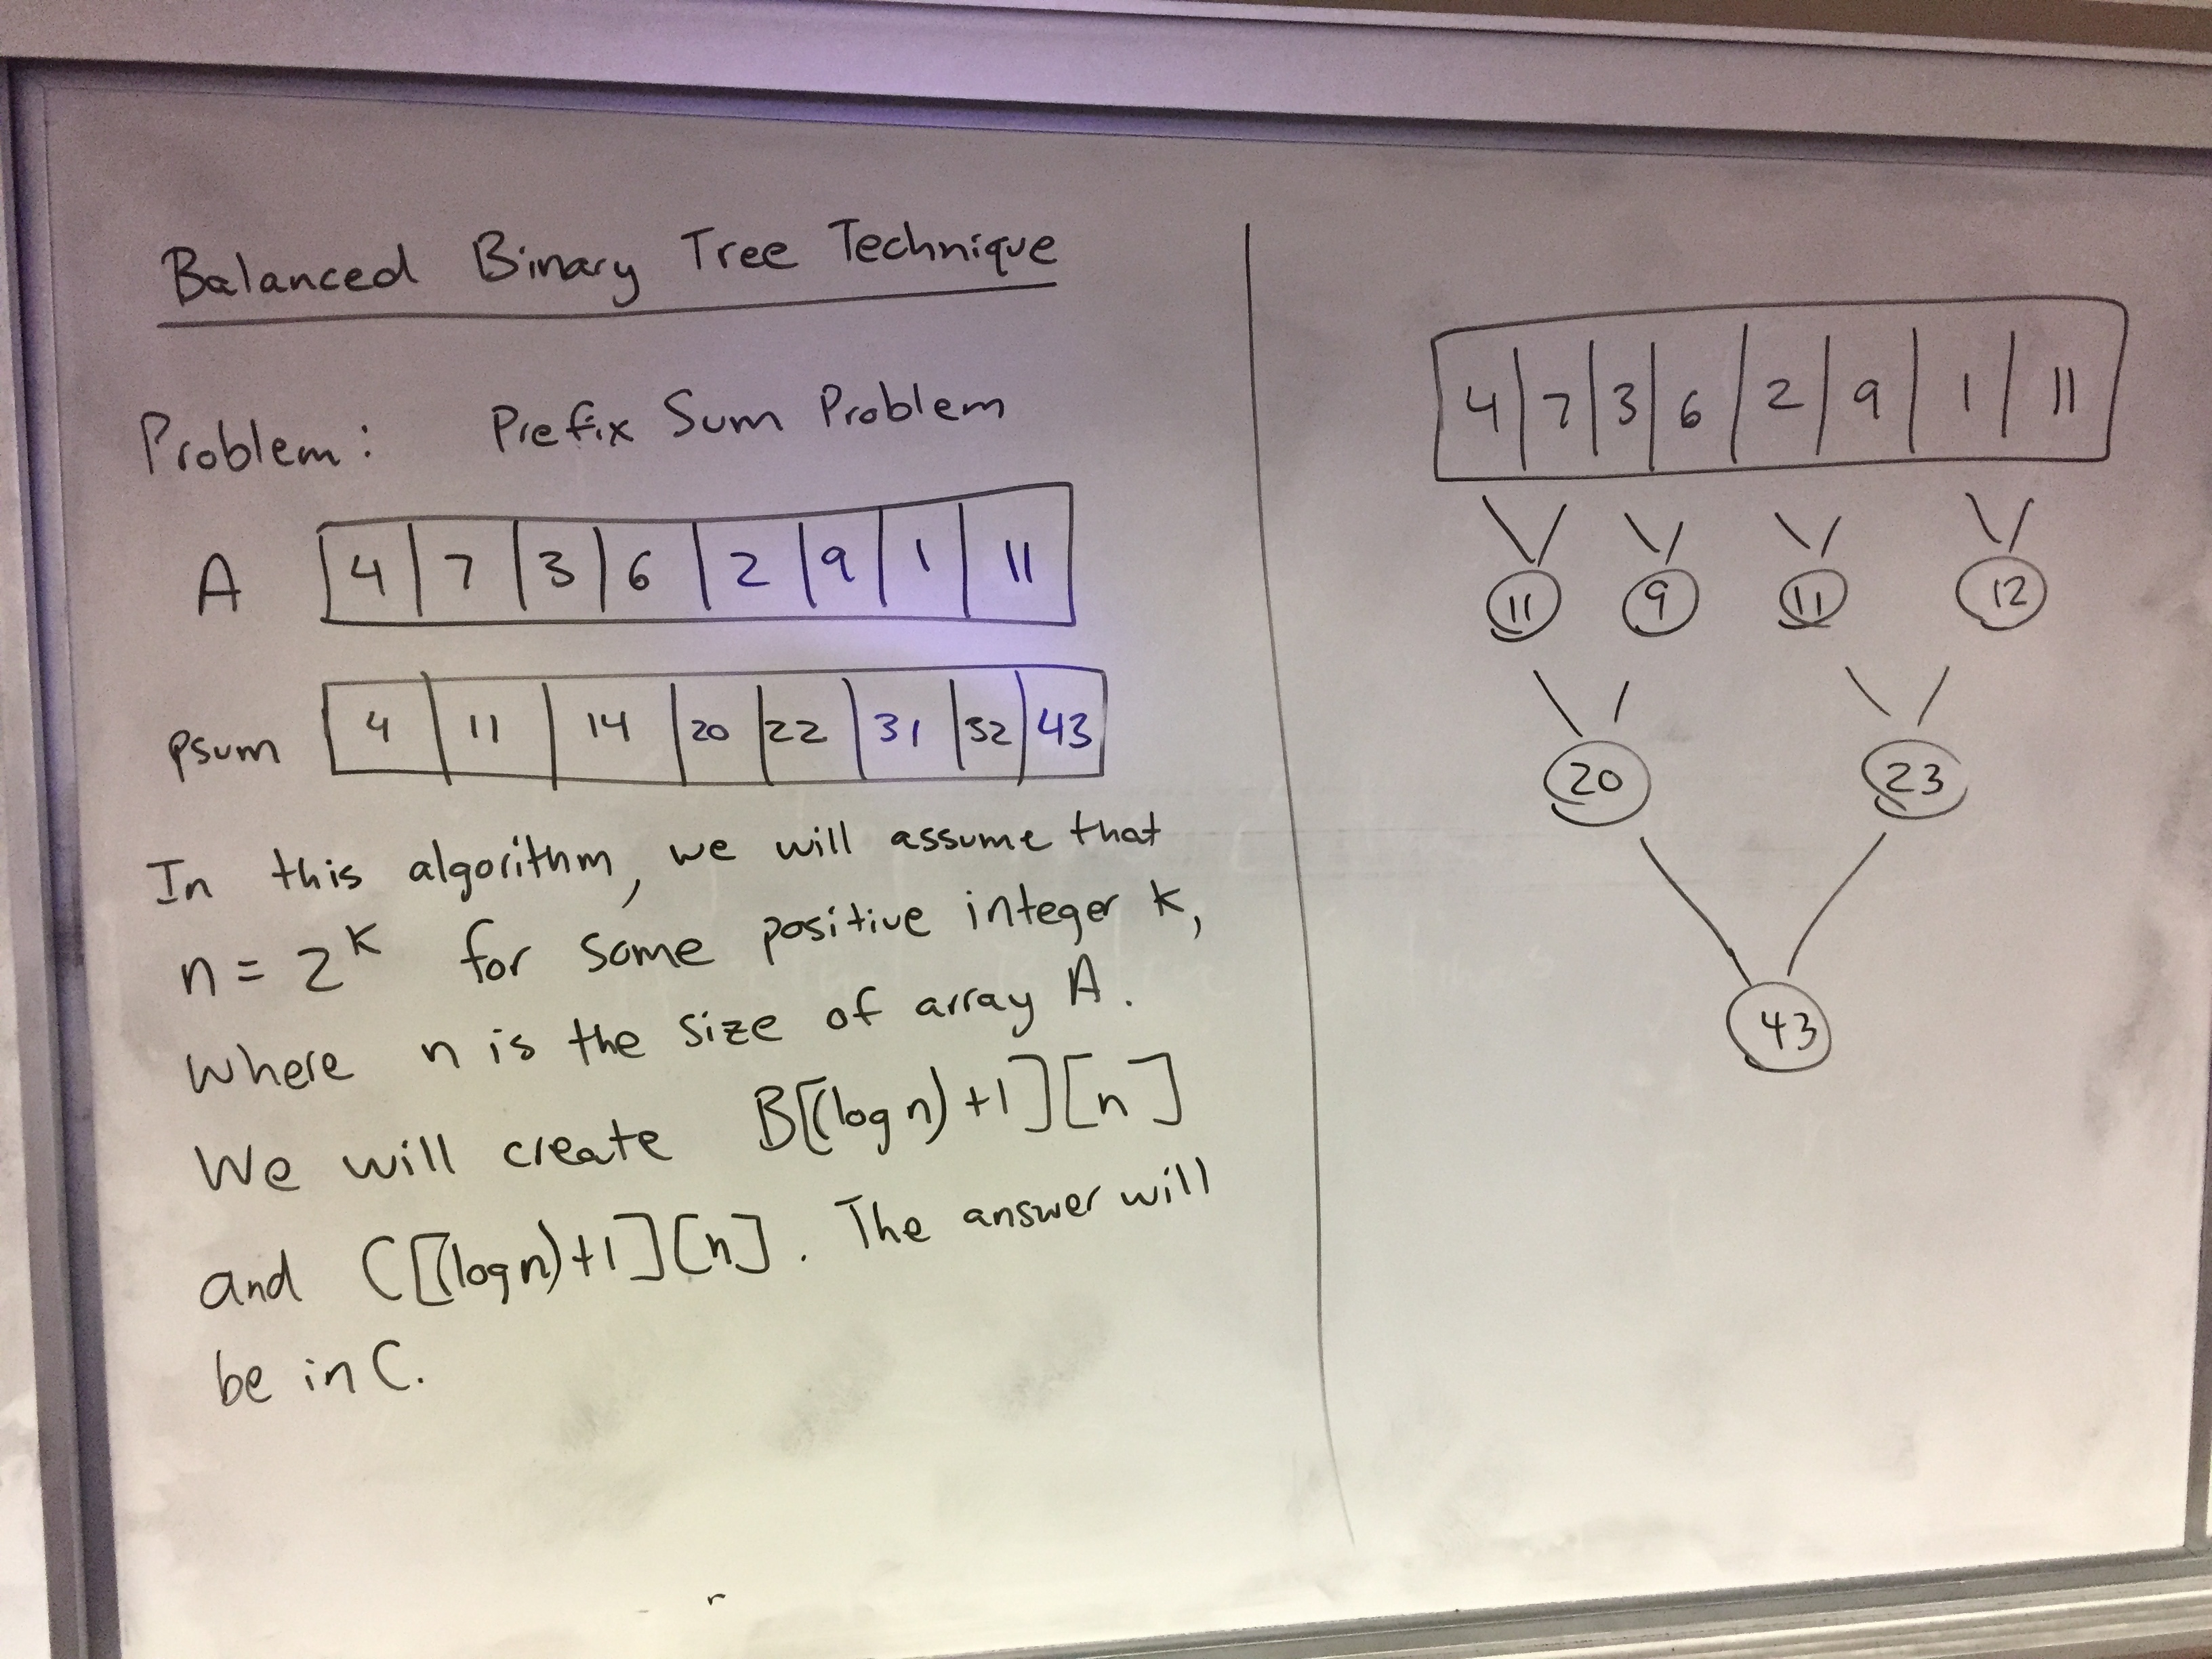 Balanced Binary Tree Technique
Problem: Prefix Sum Problem
A 4 7 3 6 2 9 1 11
psum 4 11 14 20 22 31 32 43
In this algorithm, we will assume that
n = 2^k for some positive integer k,
where n is the size of array A.
We will create B[(log n)+1][n]
and C[(log n)+1][n]. The answer will
be in C.
4 7 3 6 2 9 1 11
11 9 11 12
20 23
43